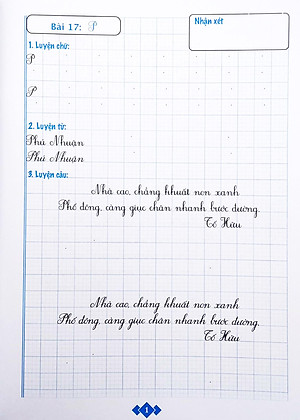 Bài 17: P
Nhận xét
1. Luyện chữ:
P
P
2. Luyện từ:
Phú Nhuận
Phú Nhuận
3. Luyện câu:
Nhà cao, chẳng khuất non xanh
Phố đông, càng giục chân nhanh bước đường.
Tố Hữu
Nhà cao, chẳng khuất non xanh
Phố đông, càng giục chân nhanh bước đường.
Tố Hữu
1